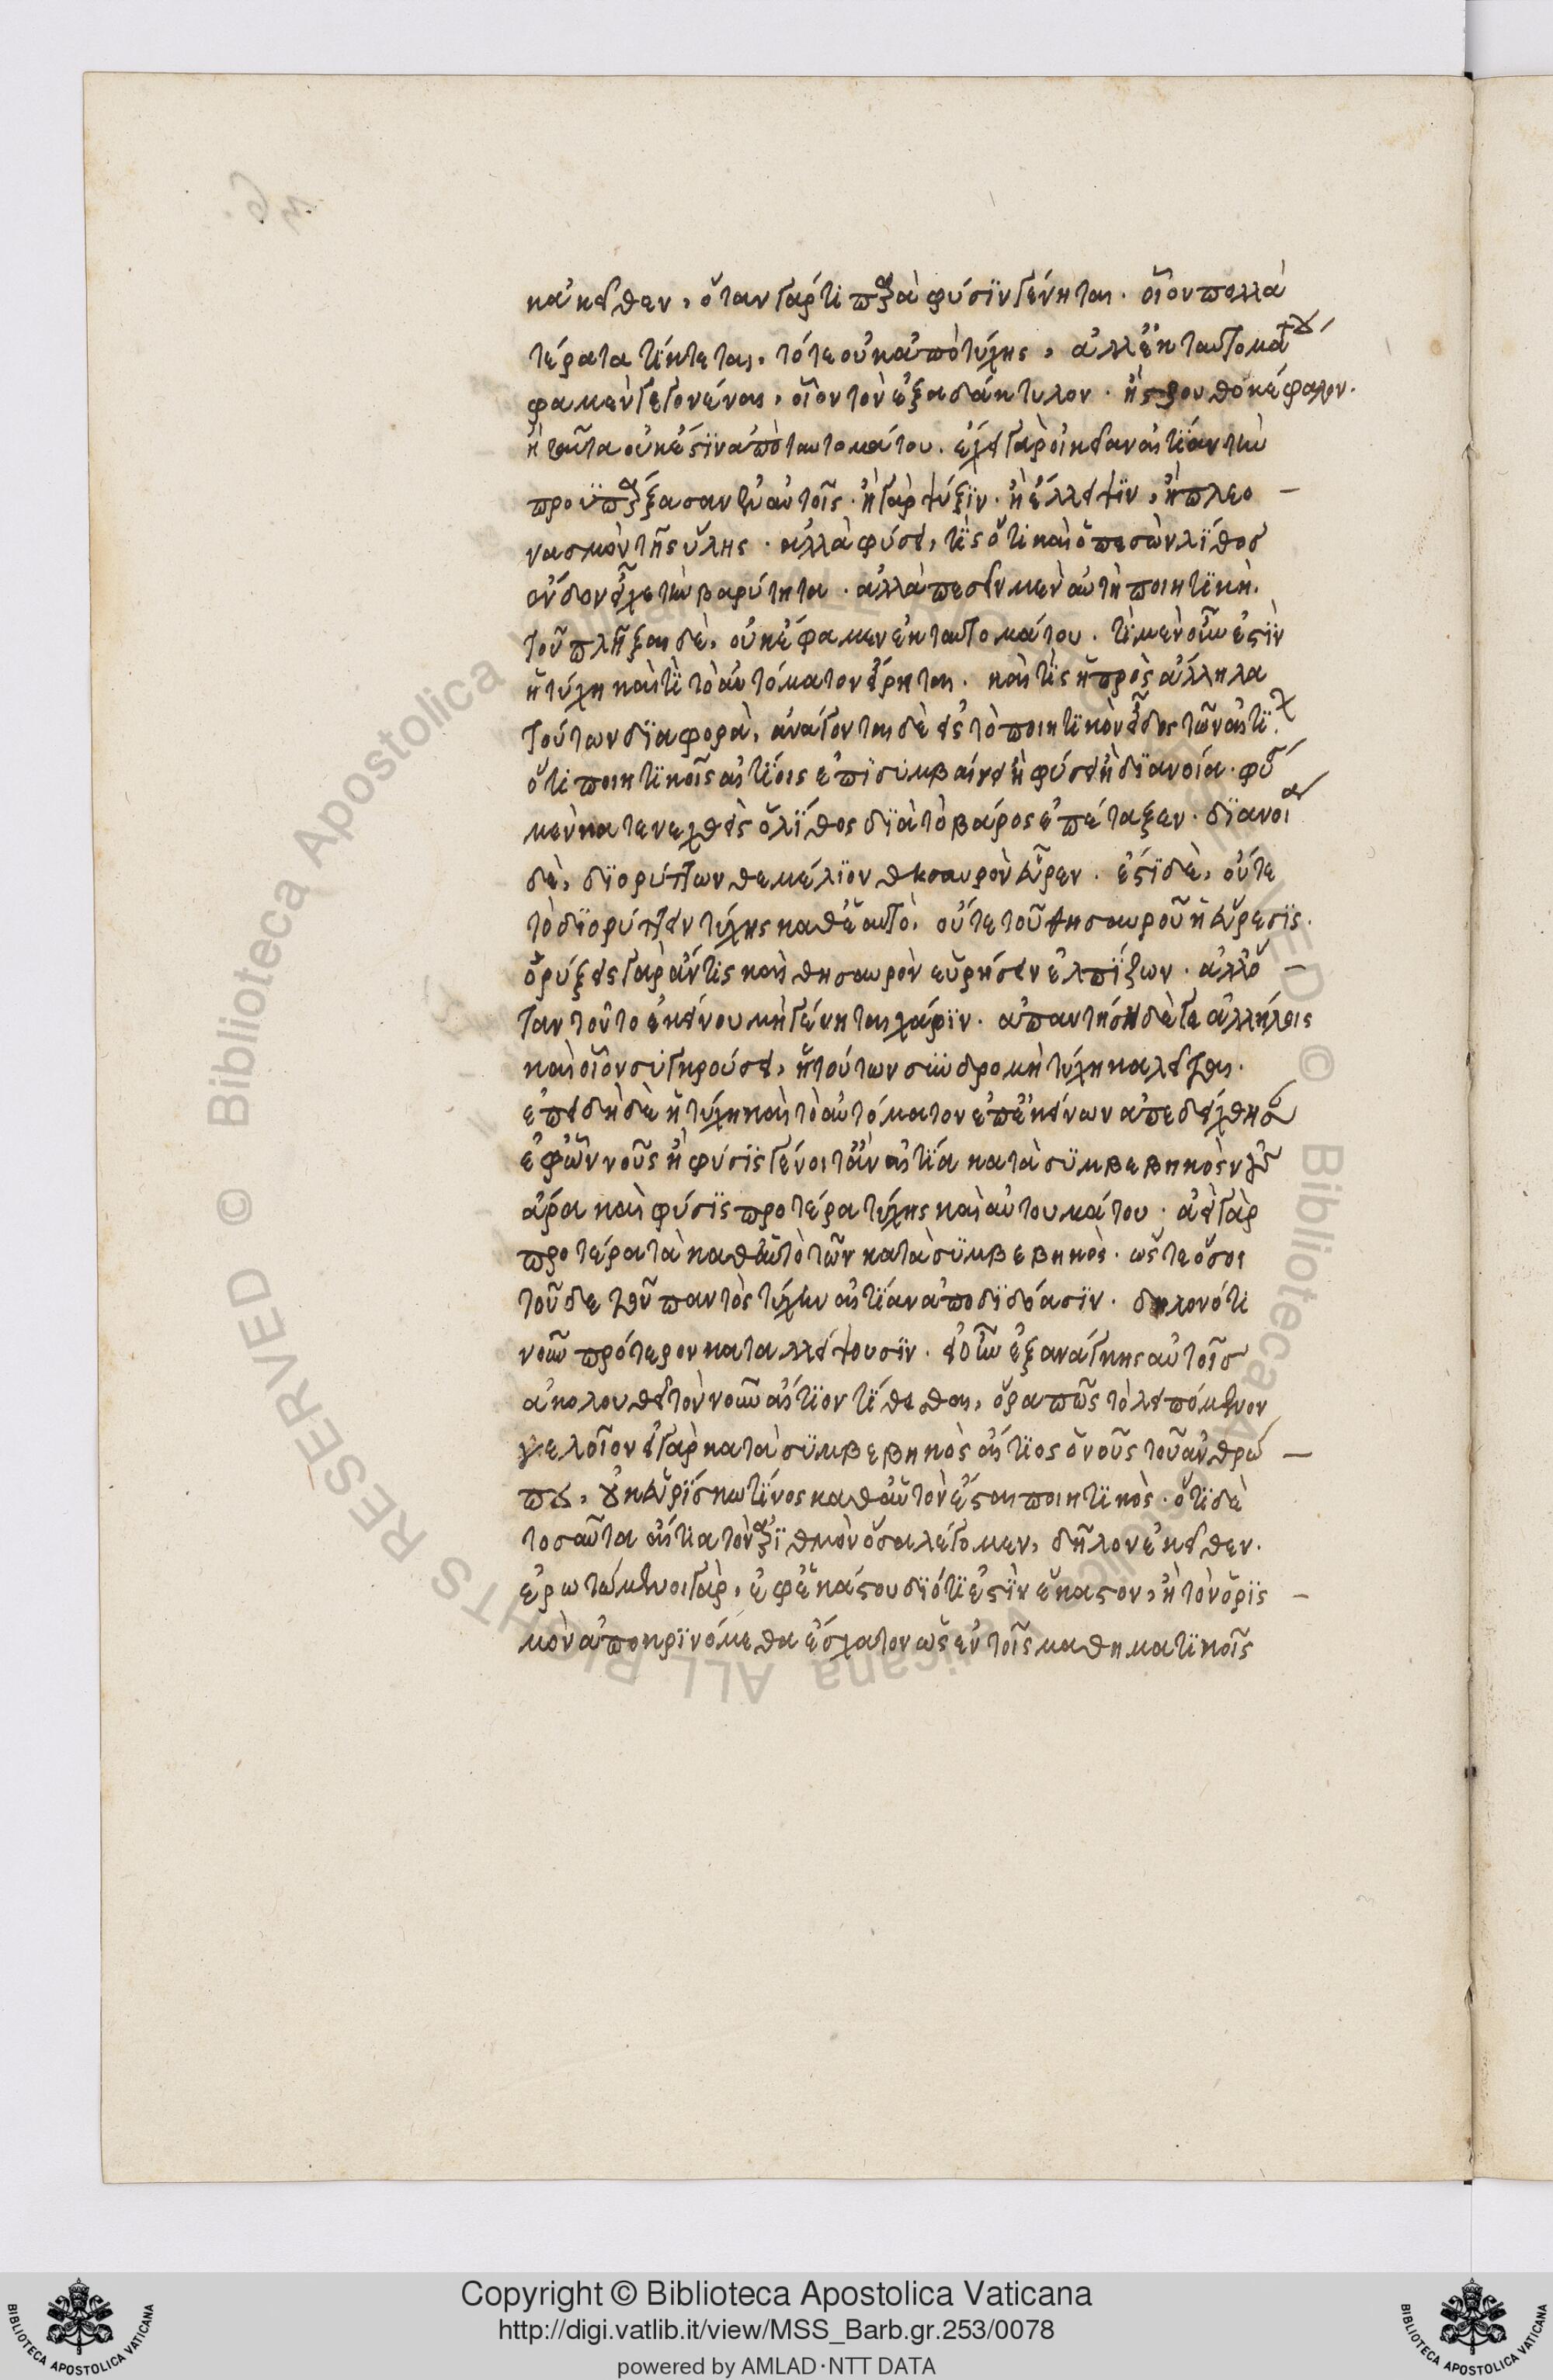 κακεῖθεν, ὅταν γάρ τι παρὰ φύσϊν γένηται. οἷον πολλὰ
τέρατα τίκτεται, τότε οὐκ ἀπὸ τύχης, ἀλλ' ἐκ ταυτομάτου
φαμεν γεγονέναι, οἷον τὸν ἑξαδάκτυλον. ἢ στρουθοκέφαλον.
ἢ ταῦτα οὐκ ἔστϊν ἀπὸ ταυτομάτου. ἔχει γὰρ οἰκείαν αἰτίαν τὴν
προϋπάρξασαν ἐν αὐτοῖς. ἢ γὰρ ψύξϊν. ἢ ἔλλειψϊν, ἢ πλεο –
νασμὸν τῆς ὕλης. ἀλλὰ φύσει, τῆς ὅτι καὶ ὁ πεσὼν λίθος
ἔνδον εἶχε τὴν βαρύτητα. ἀλλὰ πεσεῖν μὲν αὐτὴ ποιητϊκὴ.
τοῦ πλῆξαι δὲ, οὐκ ἔφαμεν ἐκ ταυτομάτου. τί μὲν οὖν ἐστϊν
ἡ τύχη καὶ τί τὸ αὐτόματον εἴρηται. καὶ τίς ἡ πρὸς ἄλληλα
τούτων δϊαφορὰ, ἀνάγονται δὲ εἰς τὸ ποιητϊκὸν εἶδος τῶν αἰτίων.
ὅτι ποιητϊκοῖς αἰτίοις ἐπϊσυμβαίνει ἢ φύσει ἢ δϊανοία. φύσει
μὲν κατενεχθεὶς ὁ λίθος δϊὰ τὸ βάρος ἐπέταξεν. δϊανοία
δὲ, δϊορύττων θεμέλϊον θησαυρὸν εὗρεν. ἔστϊ δὲ, οὔτε
τὸ δϊορύττειν τύχης καθ' ἑαυτὸ, οὔτε τοῦ θησαυροῦ ἡ εὕρεσϊς.
ὀρύξειε γὰρ ἄν τις καὶ θησαυρὸν εὑρήσειν ἐλπίζων. ἀλλ' ὅ –
ταν τοῦτο ἐκείνου μὴ γένηται χάρϊν. ἀπαντήση δὲ γε ἀλλήλοις
καὶ οἷον συγκρούσει, ἡ τούτων συνδρομὴ τύχη καλεῖται.
ἐπειδὴ δὲ ἡ τύχη καὶ τὸ αὐτόματον ἐπ' ἐκείνων ἀπεδείχθησαν
ἐφ' ὧν νοῦς ἢ φύσϊς γένοιτ' ἂν αἰτία κατὰ συμβεβηκὸς νοῦς
ἄρα καὶ φύσϊς προτέρα τύχης καὶ αὐτουμάτου. ἀεὶ γὰρ
προτέρα τὰ καθ' αὑτὸ τῶν κατὰ συμβεβηκὸς. ὥστε ὅσοι
τοῦδε τοῦ παντὸς τύχην αἰτίαν ἀποδϊδόασϊν. δηλονότι
νοῦν πρότερον καταλείψουσϊν. εἰ οὖν ἐξ ἀνάγκης αὐτοῖς
ἀκολουθεῖ τὸν νοῦν αἴτιον τίθεσθαι, ὅρα πῶς τὸ λειπόμενον
γελοῖον εἰ γὰρ κατὰ συμβεβηκὸς αἴτιος ὁ νοῦς τοῦ ἀνθρώ –
που, οὐχ εὑρίσκω τίνος καθ' αὑτὸν ἔσται ποιητϊκὸς. ὅτϊ δὲ
τοσαῦτα αἴτια τὸν ἀρϊθμὸν ὅσα λέγομεν, δῆλον ἐκεῖθεν.
ἐρωτώμενοι γὰρ, ἐφ' ἑκάστου δϊότι ἐστϊν ἕκαστον, ἢ τὸν ὁρϊς –
μὸν ἀποκρϊνόμεθα ἔσχατον ὡς ἐν τοῖς μαθηματϊκοῖς
Copyright © Biblioteca Apostolica Vaticana
http://digi.vatlib.it/view/MSS_Barb.gr.253/0078
powered by AMLAD·NTT DATA
BIBLIOTECA APOSTOLICA VATICANA
BIBLIOTECA APOSTOLICA VATICANA
© Biblioteca Apostolica Vaticana ALL RIGHTS RESERVED